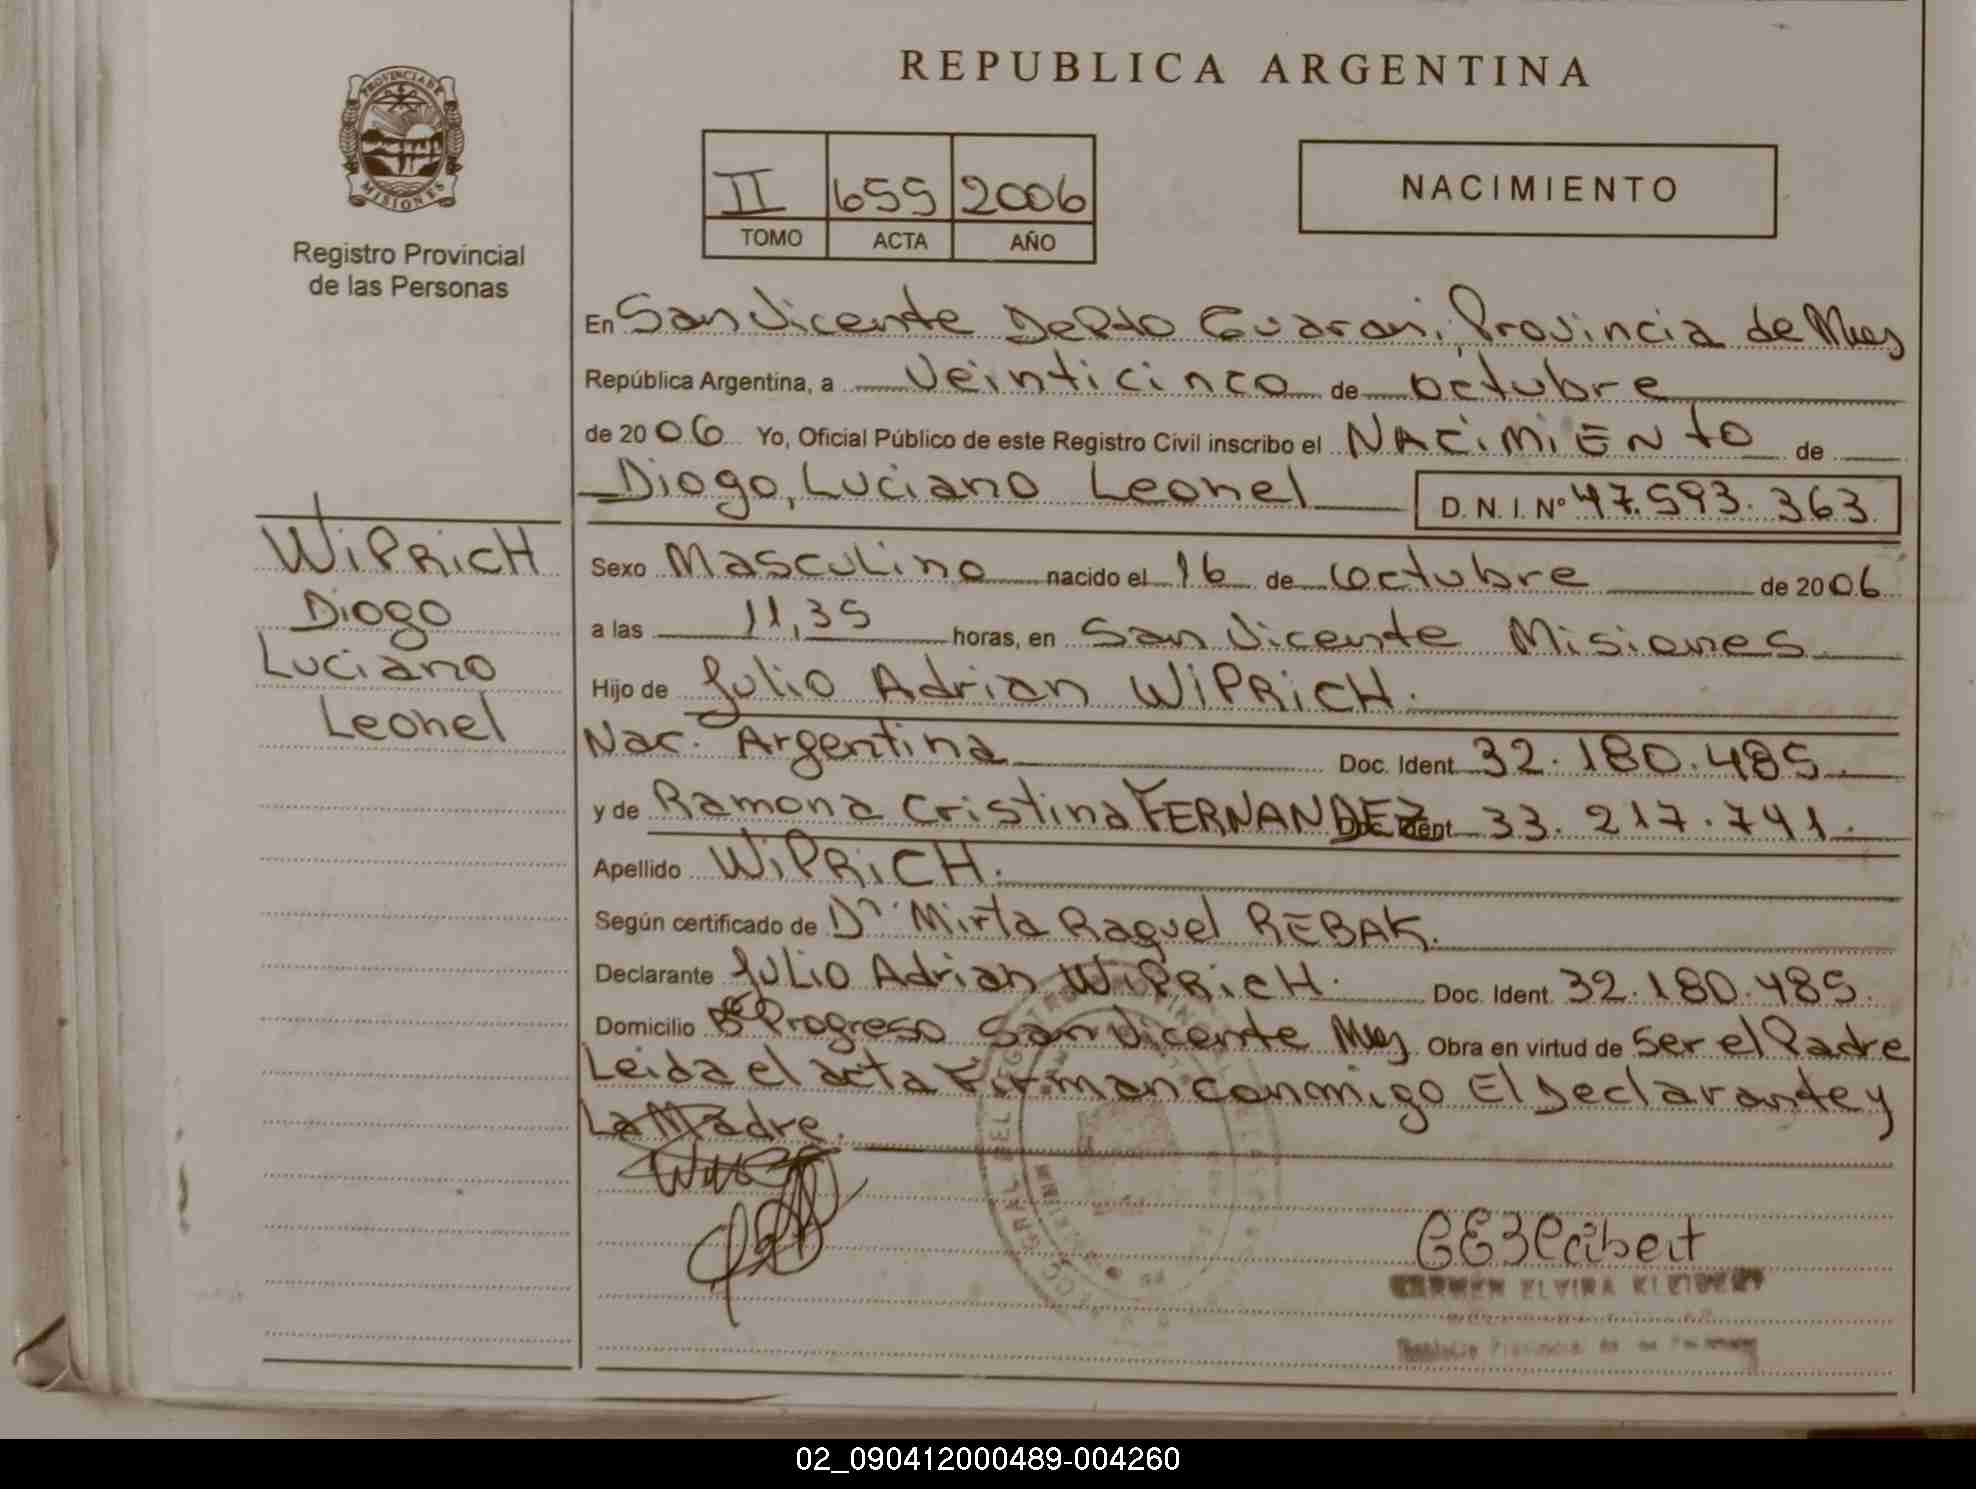 REPUBLICA ARGENTINA
PROVINCIA DE
MISIONES
Registro Provincial
de las Personas
II 655 2006
TOMO ACTA AÑO
NACIMIENTO
En San Vicente Depto Guarani, Provincia de Mnes
República Argentina, a Veinticinco de octubre
de 2006 Yo, Oficial Público de este Registro Civil inscribo el NACIMIENTO de
Diogo, Luciano Leonel D. N. I. Nº 47.593.363
WIPRICH
Diogo
Luciano
Leonel
Sexo Masculino nacido el 16 de octubre de 2006
a las 11,35 horas, en San Vicente Misiones
Hijo de Julio Adrian WIPRICH.
Nac. Argentina Doc. Ident. 32.180.485.
y de Ramona Cristina FERNANDEZ Doc. Ident. 33.217.741.
Apellido WIPRICH.
Según certificado de Dr. Mirta Raquel REBAK.
Declarante Julio Adrian WIPRICH. Doc. Ident. 32.180.485.
Domicilio Bº Progreso San Vicente Mnes Obra en virtud de Ser el Padre
Leida el acta Firman conmigo El Declarante y
La Madre.
CARMEN ELVIRA KLEIBERT
02_090412000489-004260